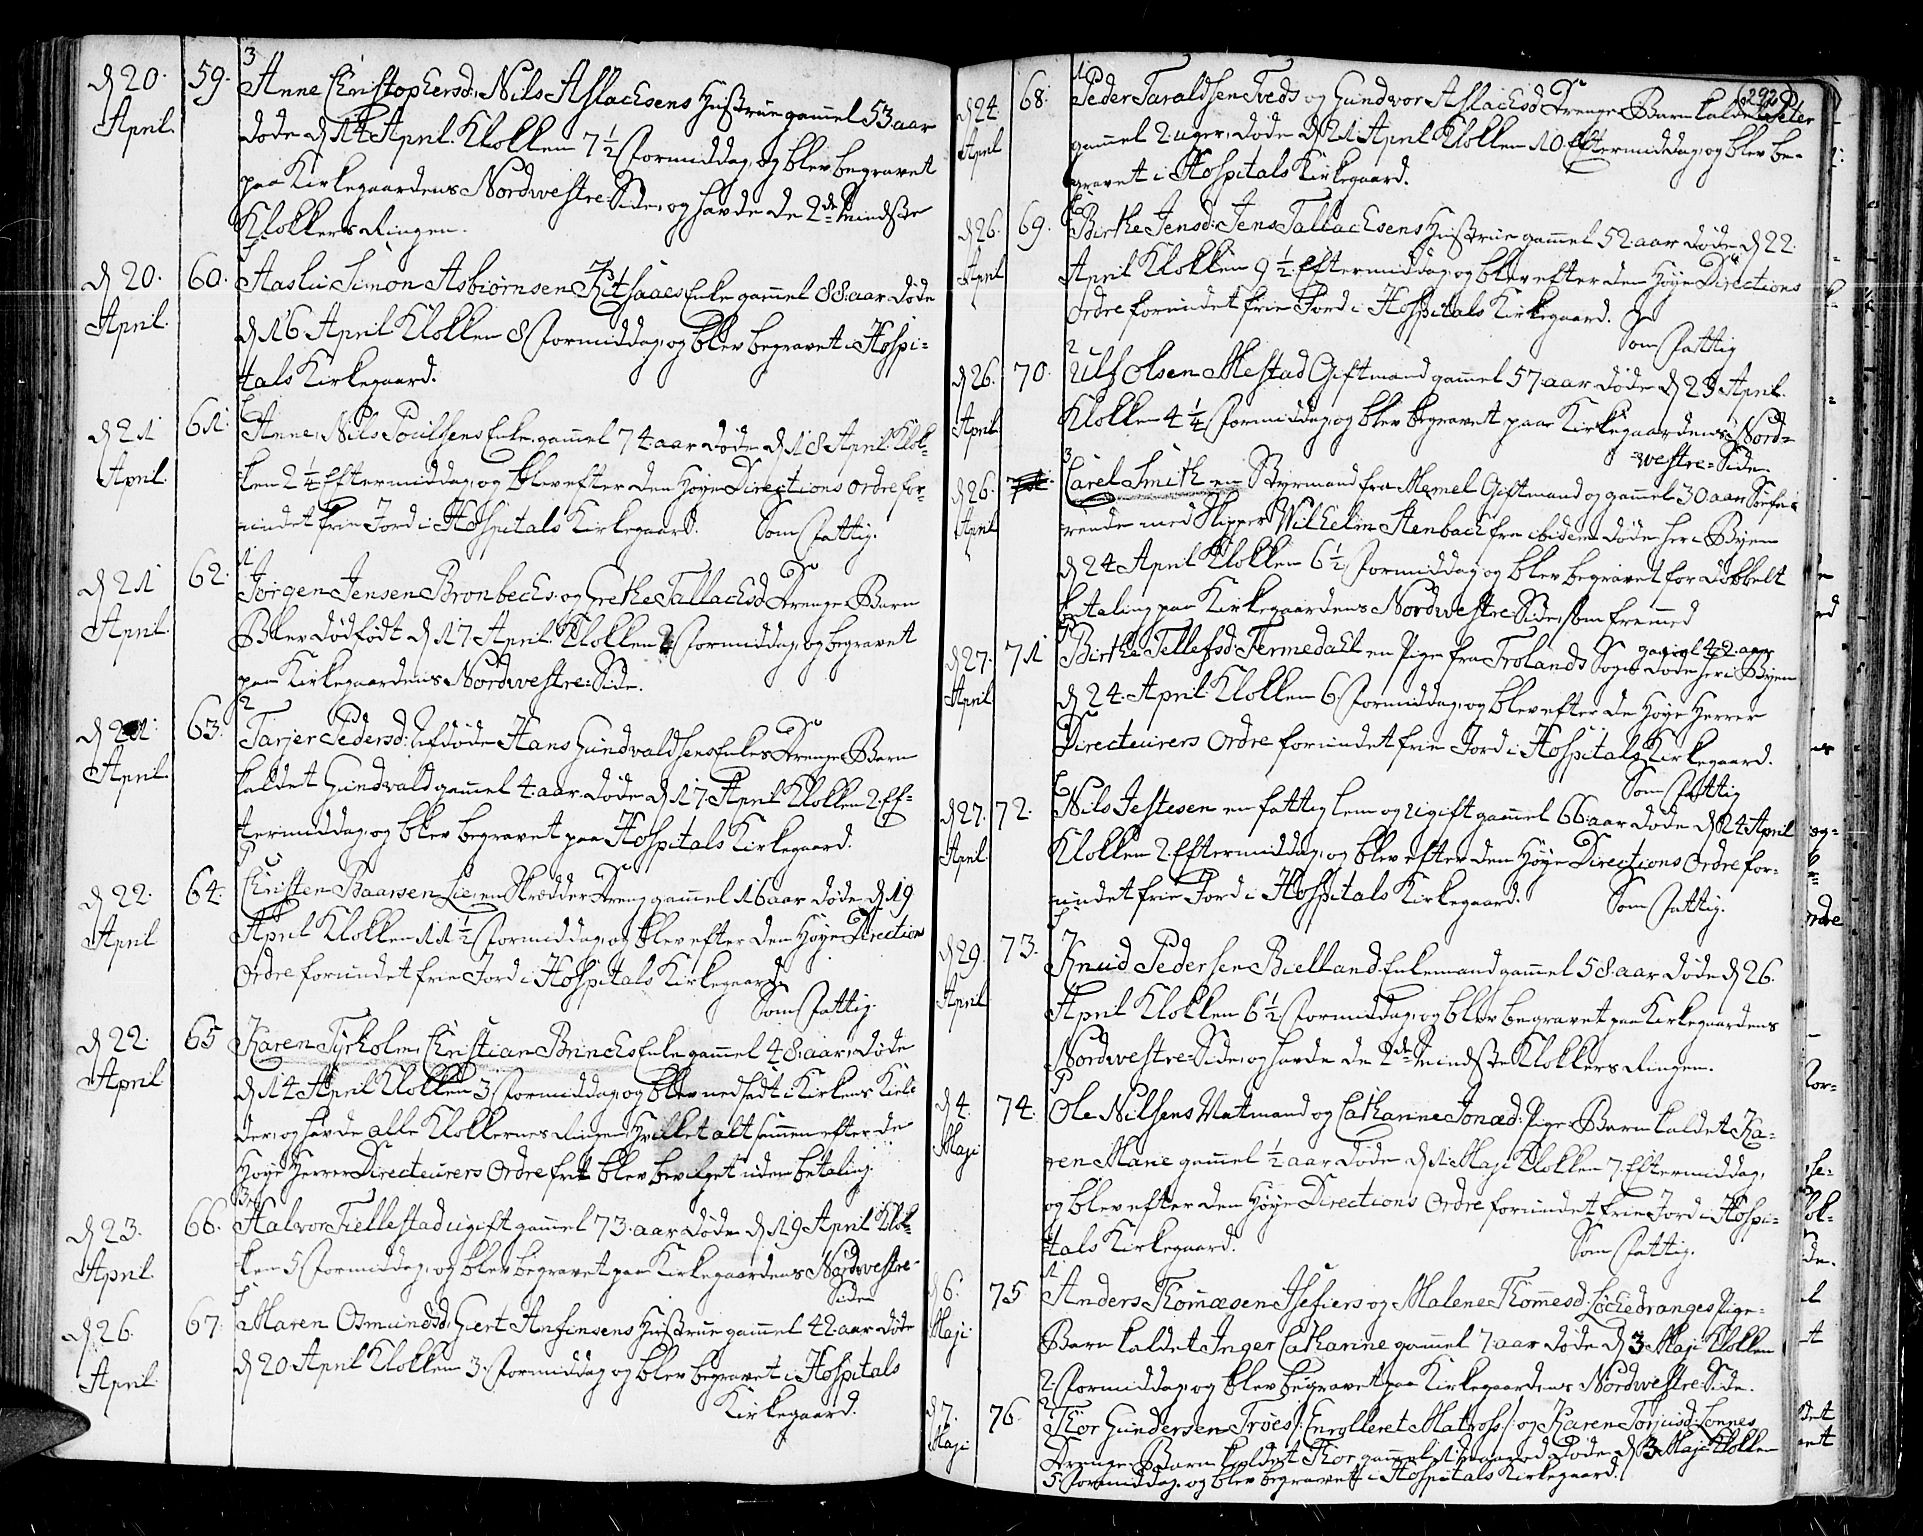 d 20. April. 59. 3 Anne Christophersd, Nils Aslachsens Hustrue gamel 53 aar
døde d 14 April. Klokken 7½ formiddag, og blev begravet
paa Kirkegaardens Nordwestre Side, og havde de 2de mindste
Klokkers Ringen.
d 20. April. 60. Aaslu Simon Asbiørnsen Enke gamel 88 aar døde
d 16 April Klokken 8 formiddag, og blev begravet i Hospi-
tals Kirkegaard.
d 21 April. 61. Anne, Nils Poulsens Enke, gamel 74 aar døde d 18 April Klok-
ken 2¼ Eftermiddag, og blev efter den Høye Directions ordre for-
undet frie Jord i Hospitals Kirkegaard. Som fattig.
d 21 April. 62. 1 Jørgen Jensen Bronbechs og Grethe Tallachsd Drenge Barn
Blev dødfødt d 17 April. Klokken formiddag, og begravet
paa Kirkegaardens Nordwestre Side.
d 21. April. 63. 2 Tarjer Pedersd: Afdøde Hans Gundvaldsens Enkes Drenge Barn
kaldet Gundvald gamel 4 aar døde d 17. April Klokken 2. Ef-
termiddag, og blev begravet paa Hospitals Kirkegaard.
d 22. April 64. Christen Baarsen Lie, en Skrædder Dreng gamel 16 aar døde d 19
April Klokken 11½ formiddag, og blev efter den Høye Direction
Ordre forundet frie Jord i Hospitals Kirkegaard
Som fattig.
d 22. April 65 Karen Tyrholm, Christian Brinchs Enke gamel 48 aar, døde
d 14 April Klokken 3 formiddag, og blev nedsadt i Kirkens Kiel-
der, og havde alle Klokkernes Ringen, Hvilket alt sammen efter de
Høye Herrer Directeurers Ordre frit blev bevilget uden betaling.
d 23. April. 66. 3 Halvor Fiellestad ugift gamel 73 aar døde d 19 April Klok-
ken 5 formiddag, og blev begravet paa Kirkegaardens Nordwestre-
Side
d 26. April. 67. Maren Osmundsd, Giert Anfinsens Hustrue gamel 42 aar døde
d 20 April Klokken 3. formiddag og blev begravet i Hospitals
Kirkegaard.
292
d 24. April 68. 1 Peder Taraldsen Tveds og Gundvor Aslachsd Drenge Barn kaldet Peter
gamel 2 uger, døde d 21 April Klokken 10 Eftermiddag, og blev be-
gravet i Hospitals Kirkegaard.
d 26. April 69. Birthe Jensd: Jens Tallachsens Hustrue gamel 52 aar døde d 22.
April Klokken 9½ Eftermiddag, og blev efter den Høye Directions
Ordre forundet frie Jord i Hospitals Kirkegaard.
Som fattig
d 26. April 70. 2 Ulf Olsen Mestad Giftmand gamel 57 aar døde d 23 April.
Klokken 4¼ formiddag, og blev begravet paa Kirkegaardens Nord-
westre-Side.
d 26. April 3 Carel Smith en Styrmand fra Memel Giftmand og gamel 30 aar Søefa-
rende med Skipper Wilhelm Stenbach fra ibidem døde her i Byen
d 24 April Klokken 6½ formiddag, og blev begravet for dobbelt
betaling paa Kirkegaardens Nordwestre Side, som fremmed
d 27. April 71 Birthe Tellefsd: Termedahl en Pige fra Trolands Sogn gamel 42 aar døde her i Byen
d 24. April Klokken 6 formiddag, og blev efter de Høye Herrer
Directeurers Ordre forundet frie Jord i Hospitals Kirkegaard.
Som fattig
d 27. April 72. Nils Jestesen en fattig lem og ugift gamel 66 aar døde d 24 April
Klokken 2 Eftermiddag, og blev efter den Høye Directions Ordre for-
undet frie Jord i Hospitals Kirkegaard. Som fattig.
d 29. April 73. Knud Pedersen Bielland Enkemand gamel 58 aar døde d 26.
April Klokken 6½ formiddag, og blev begravet paa Kirkegaardens
Nordwestre-Side, og havde de 2de mindste Klokkers Ringen.
d 4. Maji 74. Ole Nilsens Natmand og Catharine Jonæd: Pige Barn kaldet Ka-
ren Marie gamel ½ aar døde d 1 Maji Klokken 7. Eftermiddag,
og blev efter den Høye Directions Ordre forundet frie Jord i Hospi-
tals Kirkegaard. Som fattig.
d 6. Maji 75 1 Anders Thomæsen Isefiers og Malene Thommesd: Lochedranges Pige-
Barn kaldet Inger Catharine gamel 7 aar døde d 3 Maji Klokken
2. formiddag, og blev begravet paa Kirkegaardens Nordwestre Side.
d 7. Maji 76. 2 Thor Gundersen Troes /: Enrolleret Matros :/ og Karen Torjusd: Sønnes
Drenge Barn kaldet Thor gamel døde d 3 Maji Klokken
5 formiddag. og blev begravet i Hospitals Kirkegaard.